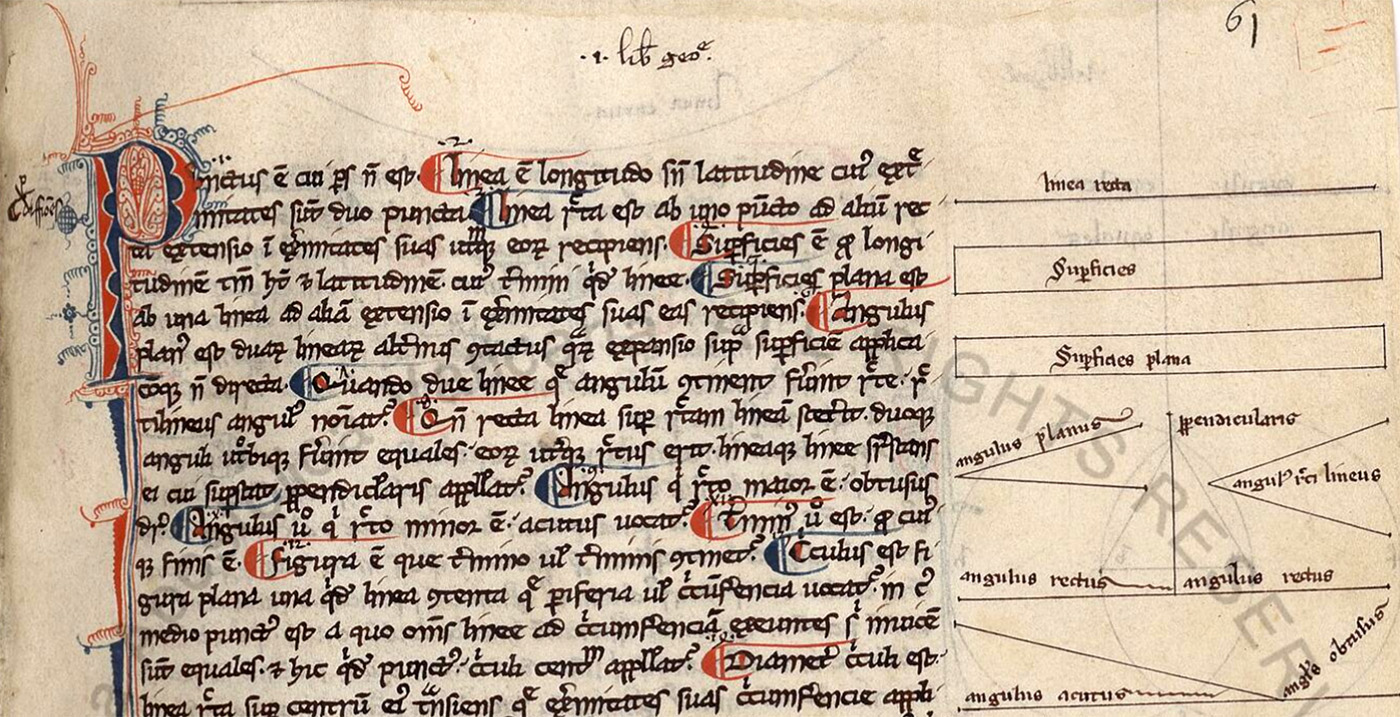 ·1· lib̄ geo^e.
61
Punctus ē cui ps̄ n̄ est. linea ē longitudo sn̄ latitudine cui᾽ ext^e
mitates sūt duo puncta. linea r̄ta est ab uno pūcto ad aliū rec
ta extensio ī ext^emitates suas utūq; eoꝝ recipiens. Suꝑficies ē q̄ longi
tudinē tm̄ hт̄ & latitudinē. cui᾽ t̄mini q̄d᾽ linee. Suꝑficies plana est
ab una linea ad aliā extensio ī ext^emitates suas eas recipiens. Angulus
plan᾽ est duaꝝ lineaꝝ alt̄nus ꝯtactus q^aꝝ expansio sup^a suꝑficiē applica
tioq; n̄ directa. Quando due linee q^e angulū ꝯtinent fūint r̄te. r̄
tilineus angul᾽ noīat᾽. Qn̄ recta linea suꝑ r̄tam lineā stet̄it. duoq;
anguli ut^obiq; fūint equales. eoꝝ ut̄q; r̄tus erit. lineaq; linee sr̄stans
ei cui suꝑstat ꝑpendicl̄aris appll̄at᾽. Angulus q̄ r̄to maior ē. obtusus
dr̄. Angulus u^o q^i r̄to minor ē. acutus uocat᾽. t̄min᾽ u^o est. q̄ cui᾽
q; finis ē. figura ē que t̄mino ul᾽ t̄minis ꝯtinet᾽. Cculus est fi
gura plana una q̄d᾽ linea ꝯtenta q^e periferia ul᾽ c̄cūfencia uocat᾽. in c᾽
medio punct᾽ est a quo om̄s linee ad c̄cumfenciā exeuntes s^i inuicē
sūt equales. & hic q̄d᾽ punct᾽. c̄culi cent^m appll̄at᾽. Diamet᾽ c̄culi est.
linea r̄ta suꝑ centrū ei᾽ t^ansiens q^e ext^emitates suas c̄cumfencie appli
linea recta
Suꝑficies
Suꝑficies plana
angulus planus
ꝑpendicularis
angul᾽ r̄ci lineus
angulus rectus
angulus rectus
angulus acutus
angl᾽s obtusus